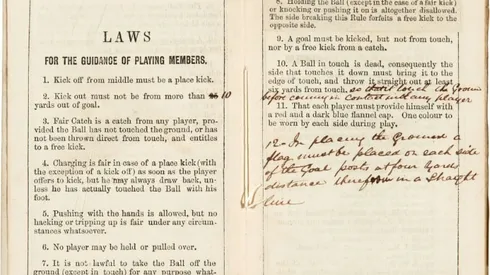 LAWS
FOR THE GUIDANCE OF PLAYING MEMBERS.
1. Kick off from middle must be a place kick.
2. Kick out must not be from more than 10
yards out of goal.
3. Fair Catch is a catch from any player, pro-
vided the Ball has not touched the ground, or has
not been thrown direct from touch, and entitles
to a free kick.
4. Charging is fair in case of a place kick (with
the exception of a kick off) as soon as the player
offers to kick, but he may always draw back, un-
less he has actually touched the Ball with his
foot.
5. Pushing with the hands is allowed, but no
hacking or tripping up is fair under any circum-
stances whatsoever.
6. No player may be held or pulled over.
7. It is not lawful to take the Ball off the
ground (except in touch) for any purpose what-
8. Holding the Ball (except in the case of a fair kick)
or knocking or pushing it on is altogether disallowed.
The side breaking this Rule forfeits a free kick to the
opposite side.
9. A goal must be kicked, but not from touch,
nor by a free kick from a catch.
10. A Ball in touch is dead, consequently the
side that touches it down must bring it to the
edge of touch, and throw it straight out at least
six yards from touch, touch the Ground
before coming in contact with any player
11. That each player must provide himself with
a red and a dark blue flannel cap. One colour to
be worn by each side during play.
12. In placing the Ground a
flag must be placed on each side
of the Goal posts at four yards
distance therefrom in a Straight
line